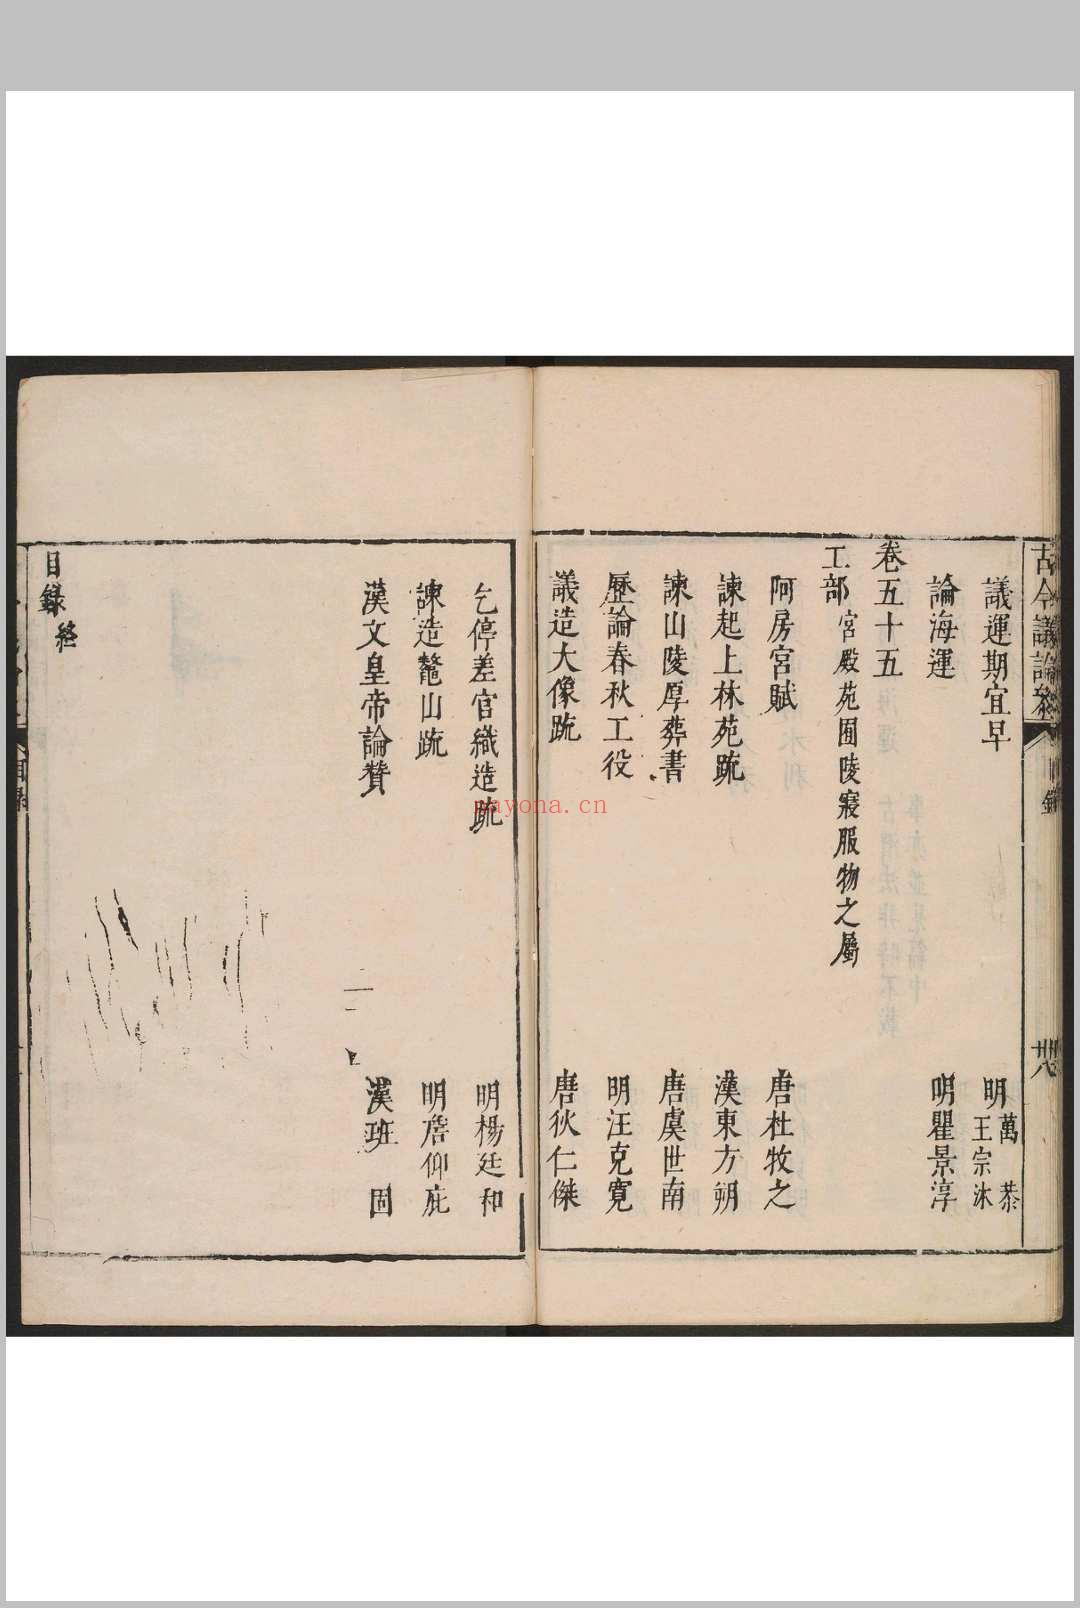 古今議論參
目錄
卅八
議運期宜早 明萬恭 王宗沐
論海運 明瞿景淳
卷五十五
工部 宮殿苑囿陵寢服物之屬
阿房宮賦 唐杜牧之
諫起上林苑疏 漢東方朔
諫山陵厚葬書 唐虞世南
歷論春秋工役 明汪克寬
議造大像疏 唐狄仁傑
乞停差官織造疏 明楊廷和
諫造鼇山疏 明詹仰庇
漢文皇帝論贊 漢班固
目錄終
nayona.cn